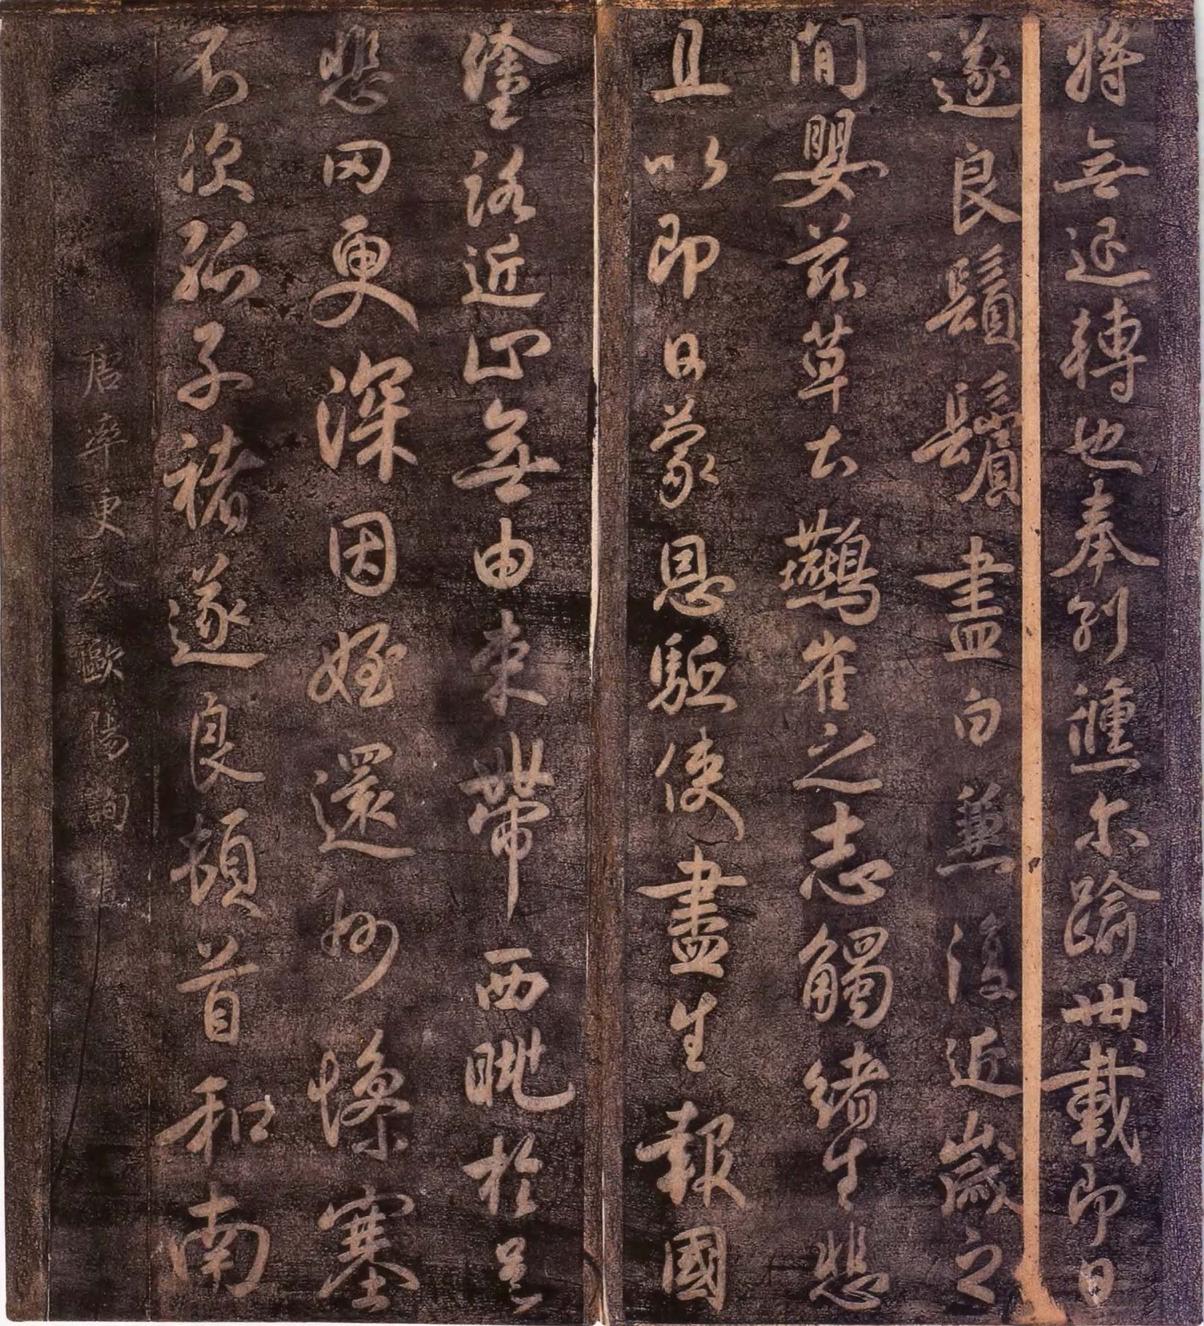 將無退轉也奉別儵尔踰卅載即日
遂良鬚鬢盡白兼復近歲之
間嬰茲草土鷰雀之志觸緒生悲
且以即日蒙恩駈使盡生報國
塗路近止無由束帶西眺於邑
悲罔更深因姪還州慘塞
不次孤子褚遂良頓首和南
唐率更令歐陽詢書